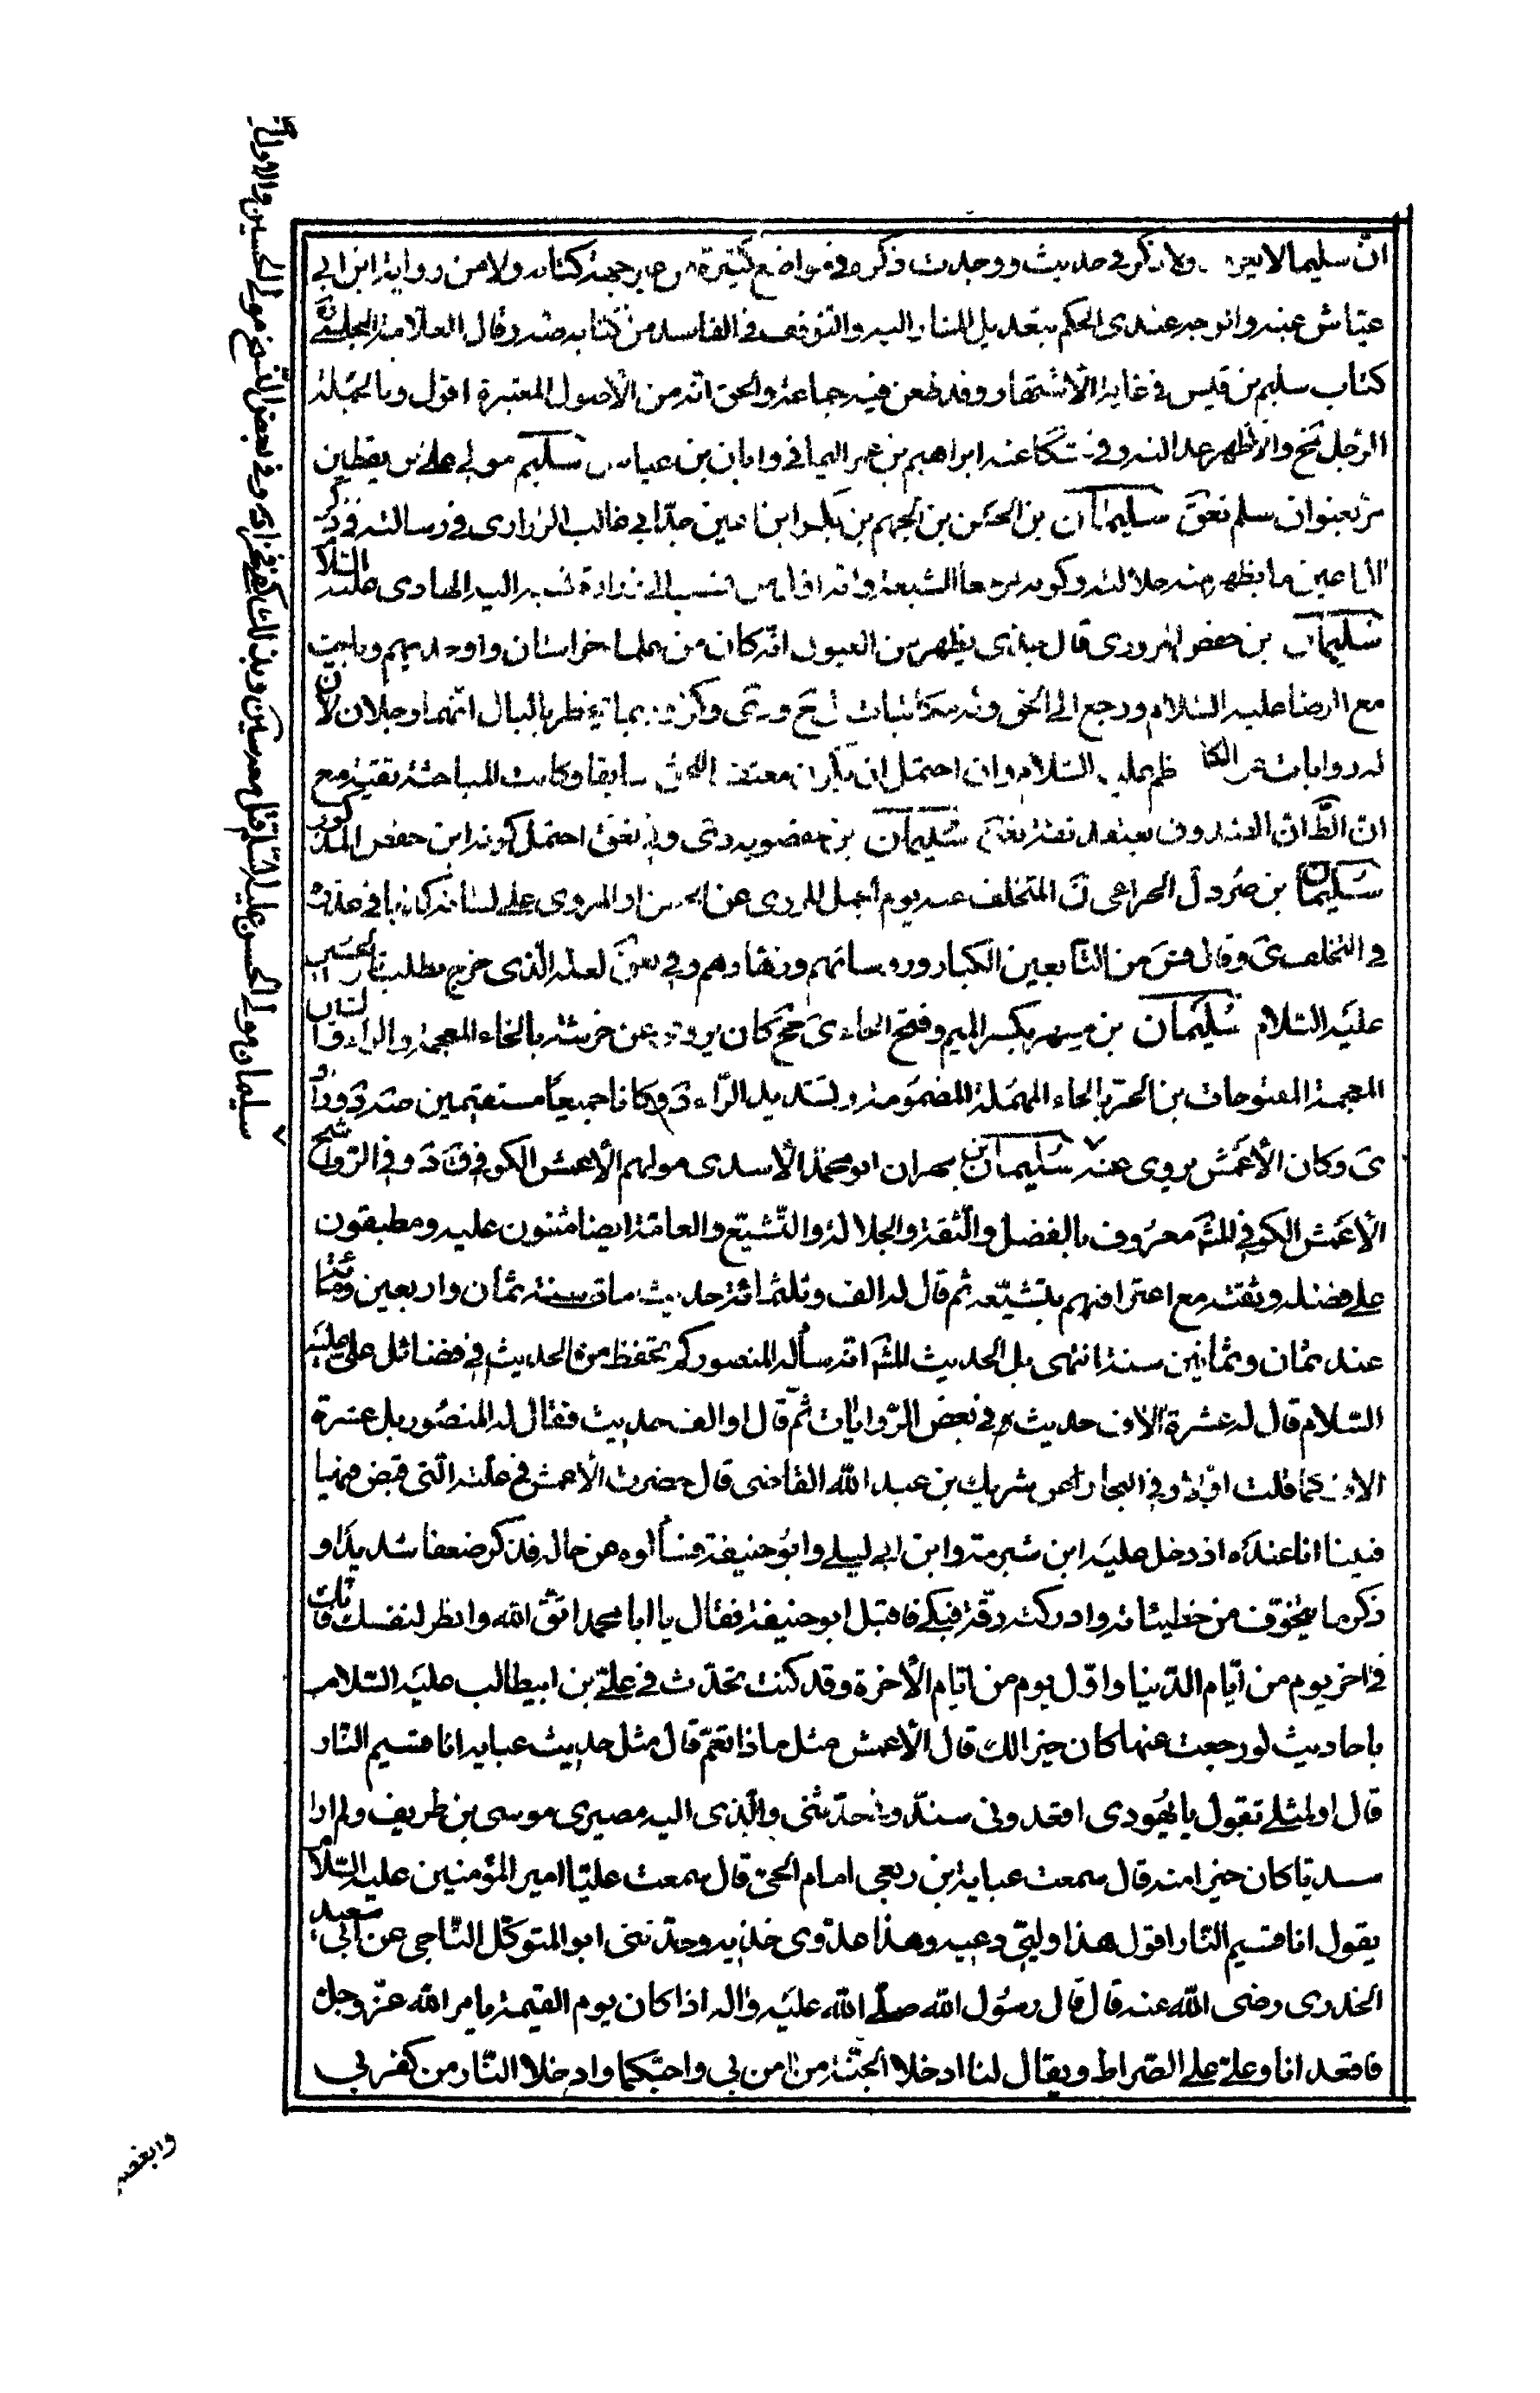 انّ سليما لا يعرف ولا ذكر في حديث ووجدت ذكره في مواضع كثيرة من غير جهة كتابه ولا من رواية ابن ابي
عياش عنه والوجه عندي الحكم بتعديل المشار اليه والتوقف في الفاسد من كتابه صه وقال العلامة المجلسي
كتاب سليم بن قيس في غاية الاشتهار وقد طعن فيه جماعة والحق انه من الأصول المعتبرة اقول وبالجملة
الرجل ثخ والاظهر عدالته وفي عنه ابراهيم بن عمر اليماني وابان بن عياش سليم مولى علي بن يقطين
مرّ بعنوان سلم تعق سليمان بن الحسن بن الجهم بن بكير ابن اعين جدّ ابي غالب الزراري في رسالته في ذكر
ال اعين ما يظهر منه جلالته وكونه مرجعا الشيعة وانه اول من نسب الى زرارة نسبه اليه الهادي عليه السّلام
سليمان بن حفص المروزي قال جدّي يظهر من العيون انه كان من علماء خراسان واوحديهم وباحث
مع الرضا عليه السّلام ورجع الى الحق وله مكاتبات الى ج ودي وكر وربما يخطر بالبال انهما رجلان لأن
له روايات عن الكاظم عليه السّلام وان احتمل ان يكون معتقد الحق سابقا وكانت المباحثة تقية مع
ان الظّ ان الصدوق يعتقد ثقته سليمان بن حفصويه دي وفي تعق احتمل كونه ابن حفص المذكور
سليمان بن صُرد ل الخزاعي ن المتخلف عنه يوم الجمل المروي عن الحسن او المروي على لسانه كذبا في عذره
في التخلف ي وقال فش من التابعين الكبار ورؤسائهم وزهادهم وفي تعق لعله الذي خرج يطلب بثار الحسين
عليه السّلام سُليمان بن مسهر بكسر الميم وفتح الهاء ي جخ كان يروي عن خرشة بالخاء المعجمة والراء والشين
المعجمة المفتوحات بن الحرّ بالحاء المهملة المضمومة وتشديد الرّاء د وكانا جميعًا مستقيمين صه د وزاد
ي وكان الأعمش يروي عنه سليمان بن مهران ابو محمد الأسدي مولهم الأعمش الكوفي ق د وفي الرواشح
الأعمش الكوفي المشـ معروف بالفضل والثقة والجلالة والتّشيّع والعامّة ايضا مثنون عليه ومطبقون
على فضله وثقته مع اعترافهم بتشيّعه ثم قال له الف وثلثمائة حديث مات سنة ثمان واربعين ومائة
عند ثمان وثمانين سنة انتهى بل الحديث المشـ انه سأله المنصور كم تحفظ من الحديث في فضائل علي عليه
السّلام قال له عشرة آلاف حديث وفي بعض الرّوايات ثمّ قال او الف حديث فقال له المنصُور بل عشرة
الاف كما قلت اوّلا وفي البحار عن شريك بن عبد الله القاضي قال حضرت الأعمش في علته التي قبض فيها
فبينا انا عنده اذ دخل عليه ابن شبرمة وابن ابي ليلى وابو حنيفة فسألوه عن حاله فذكر ضعفا شديدا و
ذكر ما يتخوّف من خطيئاته وادركته رقّة فبكى فاقبل ابو حنيفة فقال يا ابا محمد اتّق الله وانظر لنفسك فانك
في اخر يوم من ايّام الدّنيا واوّل يوم من ايّام الأخرة وقد كنت تحدّث في عليّ بن ابيطالب عليه السّلام
باحاديث لو رجعت عنها كان خيرا لك قال الأعمش مثل ماذا نعم قال مثل حديث عباية انا قسيم النّار
قال اولمثلي تقول يا يهُودي اقعدوني سنّدوني حدّثني والّذي اليه مصيري موسى بن طريف ولم ار ا
سديّا كان خيرا منه قال سمعت عباية ابن ربعي امام الحي قال سمعت عليّا امير المؤمنين عليه السّلام
يقول انا قسيم النّار اقول هذا وليّي دعيه وهذا عدّوي خذيه وحدّثني ابو المتوكّل النّاجي عن ابي سعيد
الخدري رضي الله عنه قال قال رسُول الله صلّى الله عليه واله اذا كان يوم القيمة يامر الله عزّ وجل
فاقعد انا وعليّ على الصّراط ويقال لنا ادخلا الجنّة من امن بي واحبّكما وادخلا النّار من كفر بي
وابغضـ
سليمان مولى الحسن عليه السّلام قتل معه سين وبذلك في بعض النّسخ مولى الحسين والاول